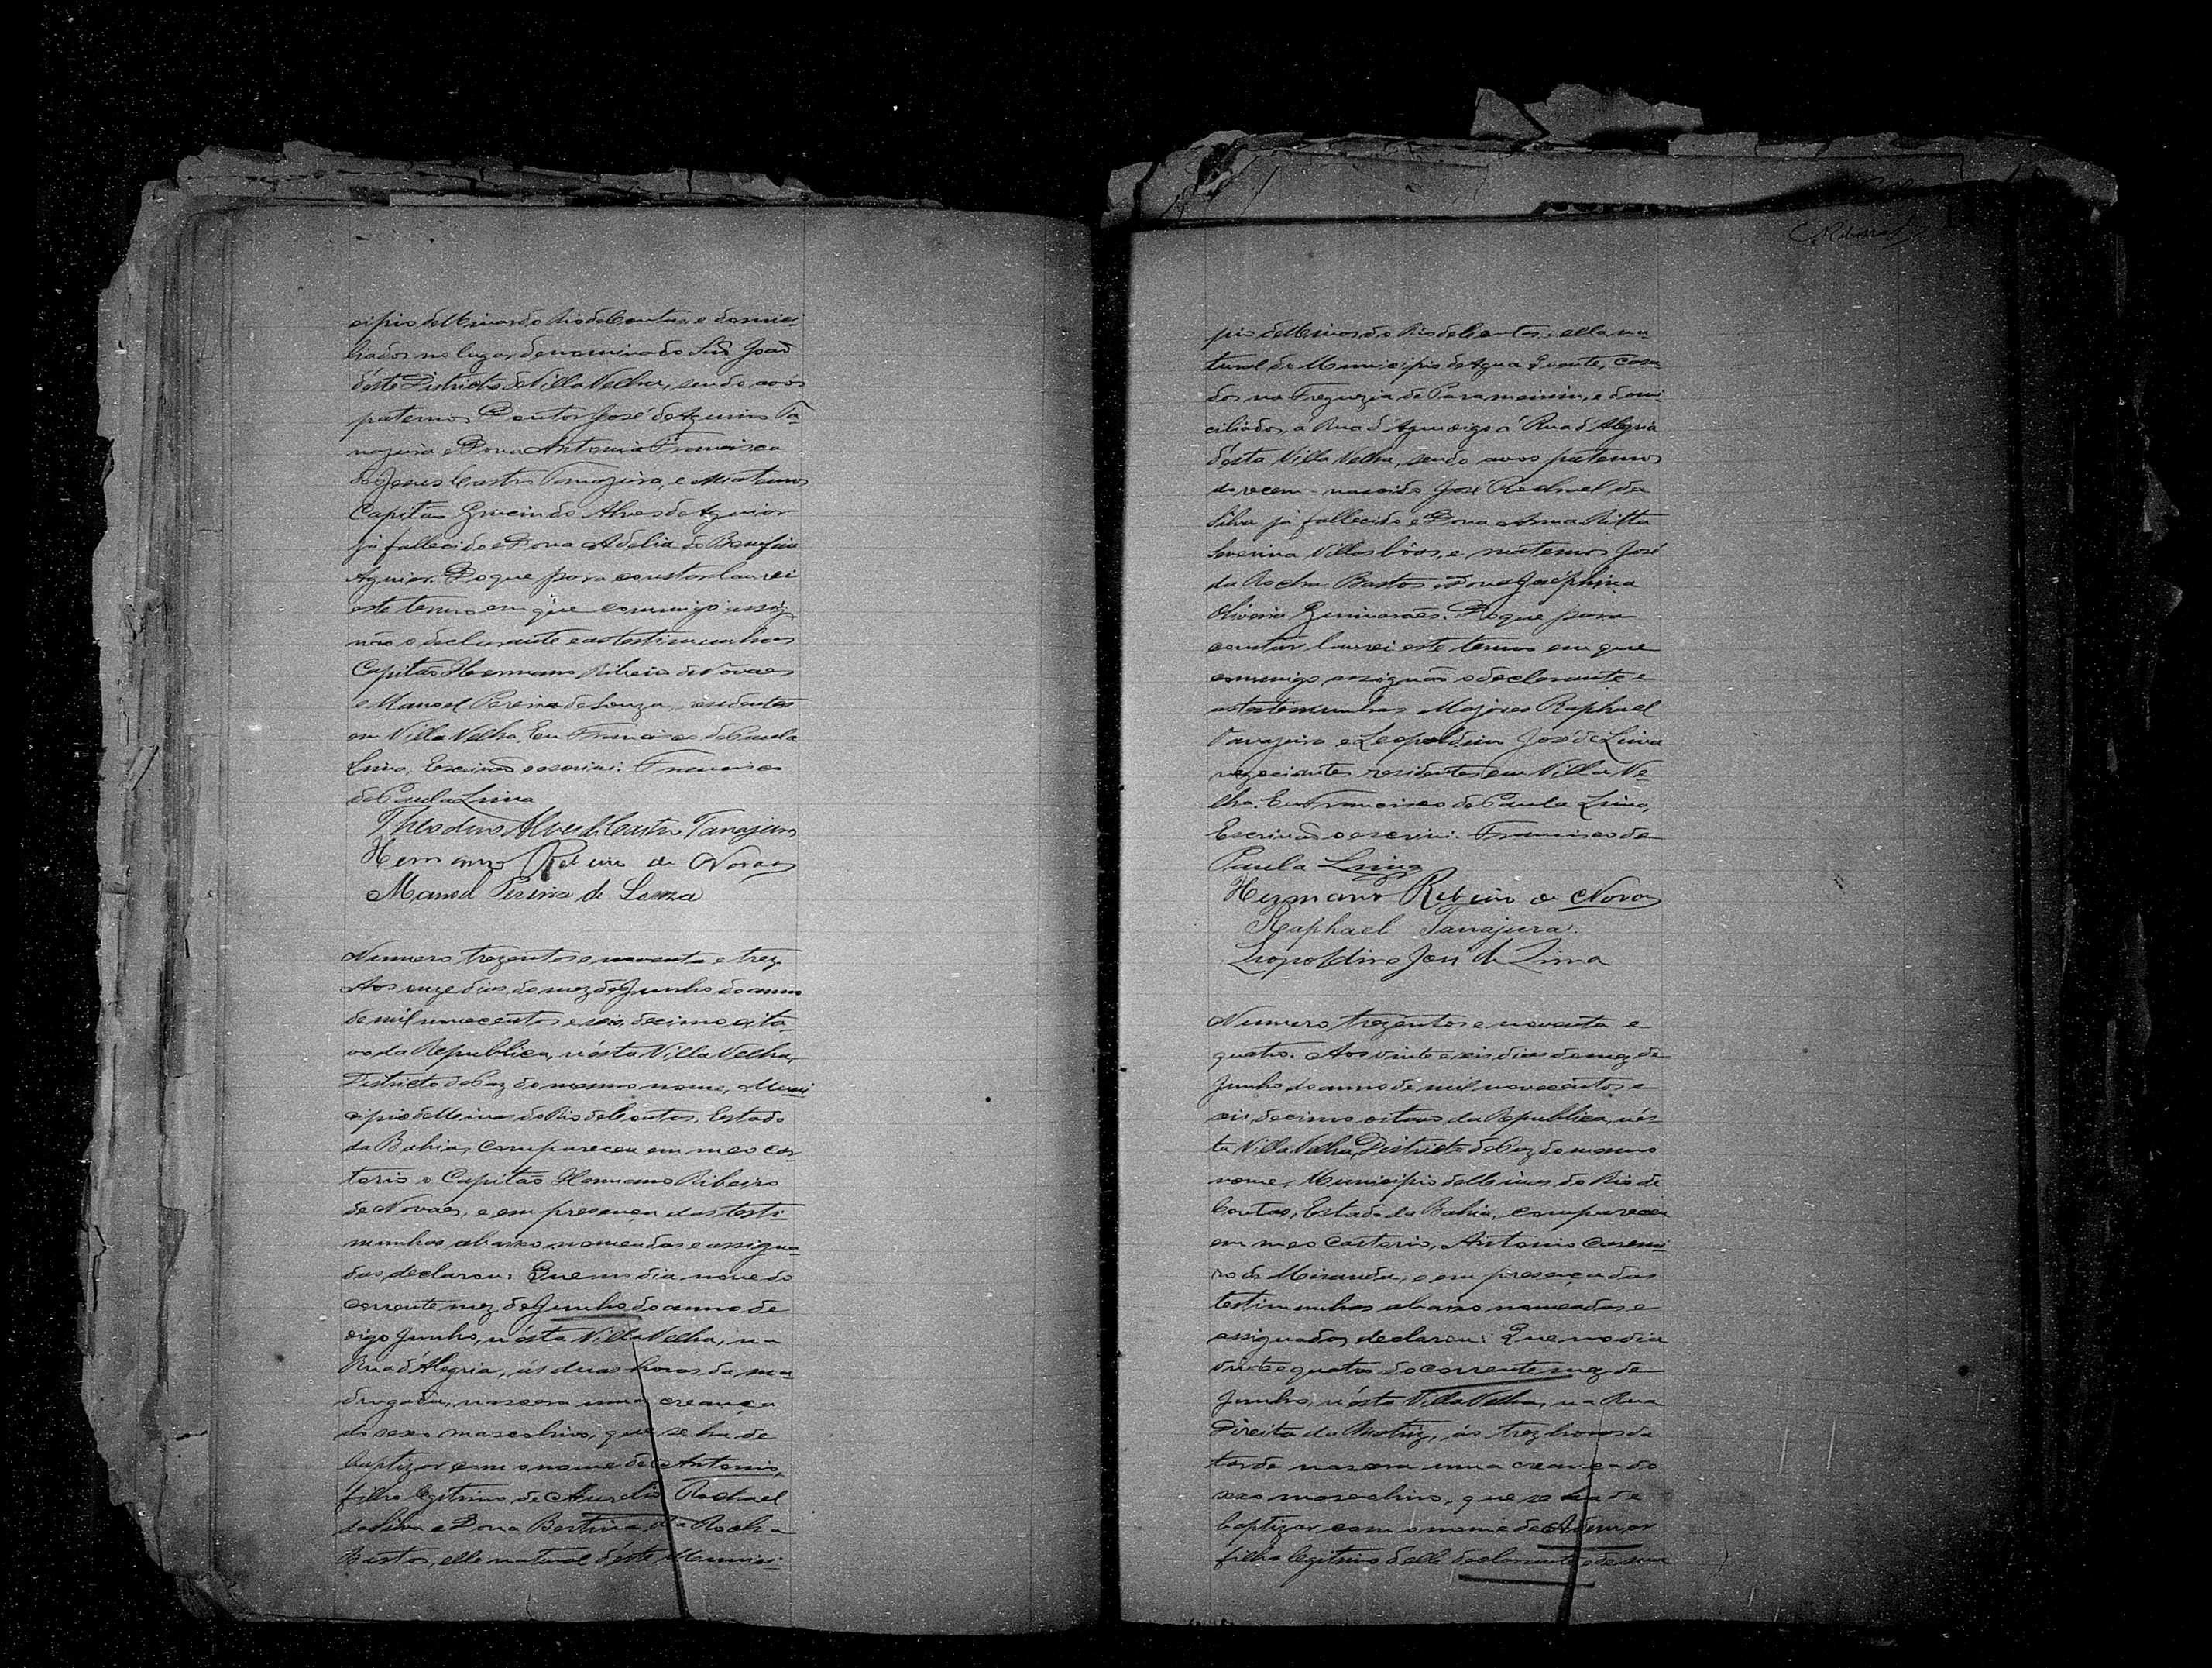 cipio de Minas do Rio de Contas, e domici-
liados no lugar denominado São João
déste Districto de Villa Velha, sendo avós
paternos Doutor José de Aquino Ta-
najura e Dona Antonia Francisca
de Jesus Castro Tanajura, e Maternos
Capitão Gracindo Alves de Aguiar
já fallecido e Dona Adelia do Bomfim
Aguiar. Do que para constar lavrei
este termo em que commigo assig-
não o declarante e as testimunhas
Capitão Hermano Ribeiro de Novaes
e Manoel Pereira de Souza, residentes
em Villa Velha. Eu Francisco de Paula
Lima, Escrivão o escrivi. Francisco
de Paula Lima
Theodoro Alves de Castro Tanajura
Hermano Ribeiro de Novaes
Manoel Pereira de Souza
Numero trezentos e noventa e trez
Aos onze dias do mez de Junho do anno
de mil novecentos e seis, decimo oita-
vo da Republica, n'ésta Villa Velha,
Districto de Paz do mesmo nome, Muni-
cipio de Minas do Rio de Contas, Estado
da Bahia, compareceu em meo car-
torio o Capitão Hermano Ribeiro
de Novaes, e em presença das testi-
munhas abaixo nomeadas e assigna-
das declarou: Que no dia nove do
corrente mez de Junho do anno de
digo Junho, n'ésta Villa Velha, na
Rua d'Alegria, ás duas horas da ma-
drugada, nascera uma creança
do sexo mascolino, que se ha de
baptizar com o nome de Antonio,
filho legitimo de Aurelio Rachael
da Silva e Dona Bertina da Rocha
Bastos, elle natural déste Munici-
pio de Minas do Rio de Contas: ella na-
tural do Municipio de Agua Quente, casa-
dos na Freguezia de Paramirim, e domi-
ciliados, á Rua d'Agua digo á Rua d'Alegria
désta Villa Velha, sendo avos paternos
do recem-nascido José Rachael da
Silva já fallecido e Dona Anna Ritta
Severina Villasbôas, e maternos José
da Rocha Bastos e Dona Joséphina
Oliveira Guimarães. Do que para
constar lavrei este termo em que
commigo assignão o declarante e
as testimunhas Majores Raphael
Tanajura e Leopoldino José de Lima
negociantes residentes em Villa Ve-
lha. Eu Francisco de Paula Lima,
Escrivão o escrivi. Francisco de
Paula Lima
Hermano Ribeiro de Novaes
Raphael Tanajura.
Leopoldino José de Lima
Numero trezentos e noventa e
quatro. Aos vinte e seis dias do mez de
Junho do anno de mil novecentos e
seis decimo oitavo da Republica, n'és-
ta Villa Velha, Districto de Paz do mesmo
nome, Municipio de Minas do Rio de
Contas, Estado da Bahia, compareceu
em meo Cartorio, Antonio Casemi-
ro de Miranda, e em presença das
testimunhas abaixo nomeadas e
assignadas, declarou: Que no dia
vinte e quatro do corrente mez de
Junho, n'ésta Villa Velha, na Rua
Direita da Matriz, ás trez horas da
tarde nascera uma creança do
sexo mascolino, que se ha de
baptizar com o nome de Ademar
filho legitimo délle declarante e de sua